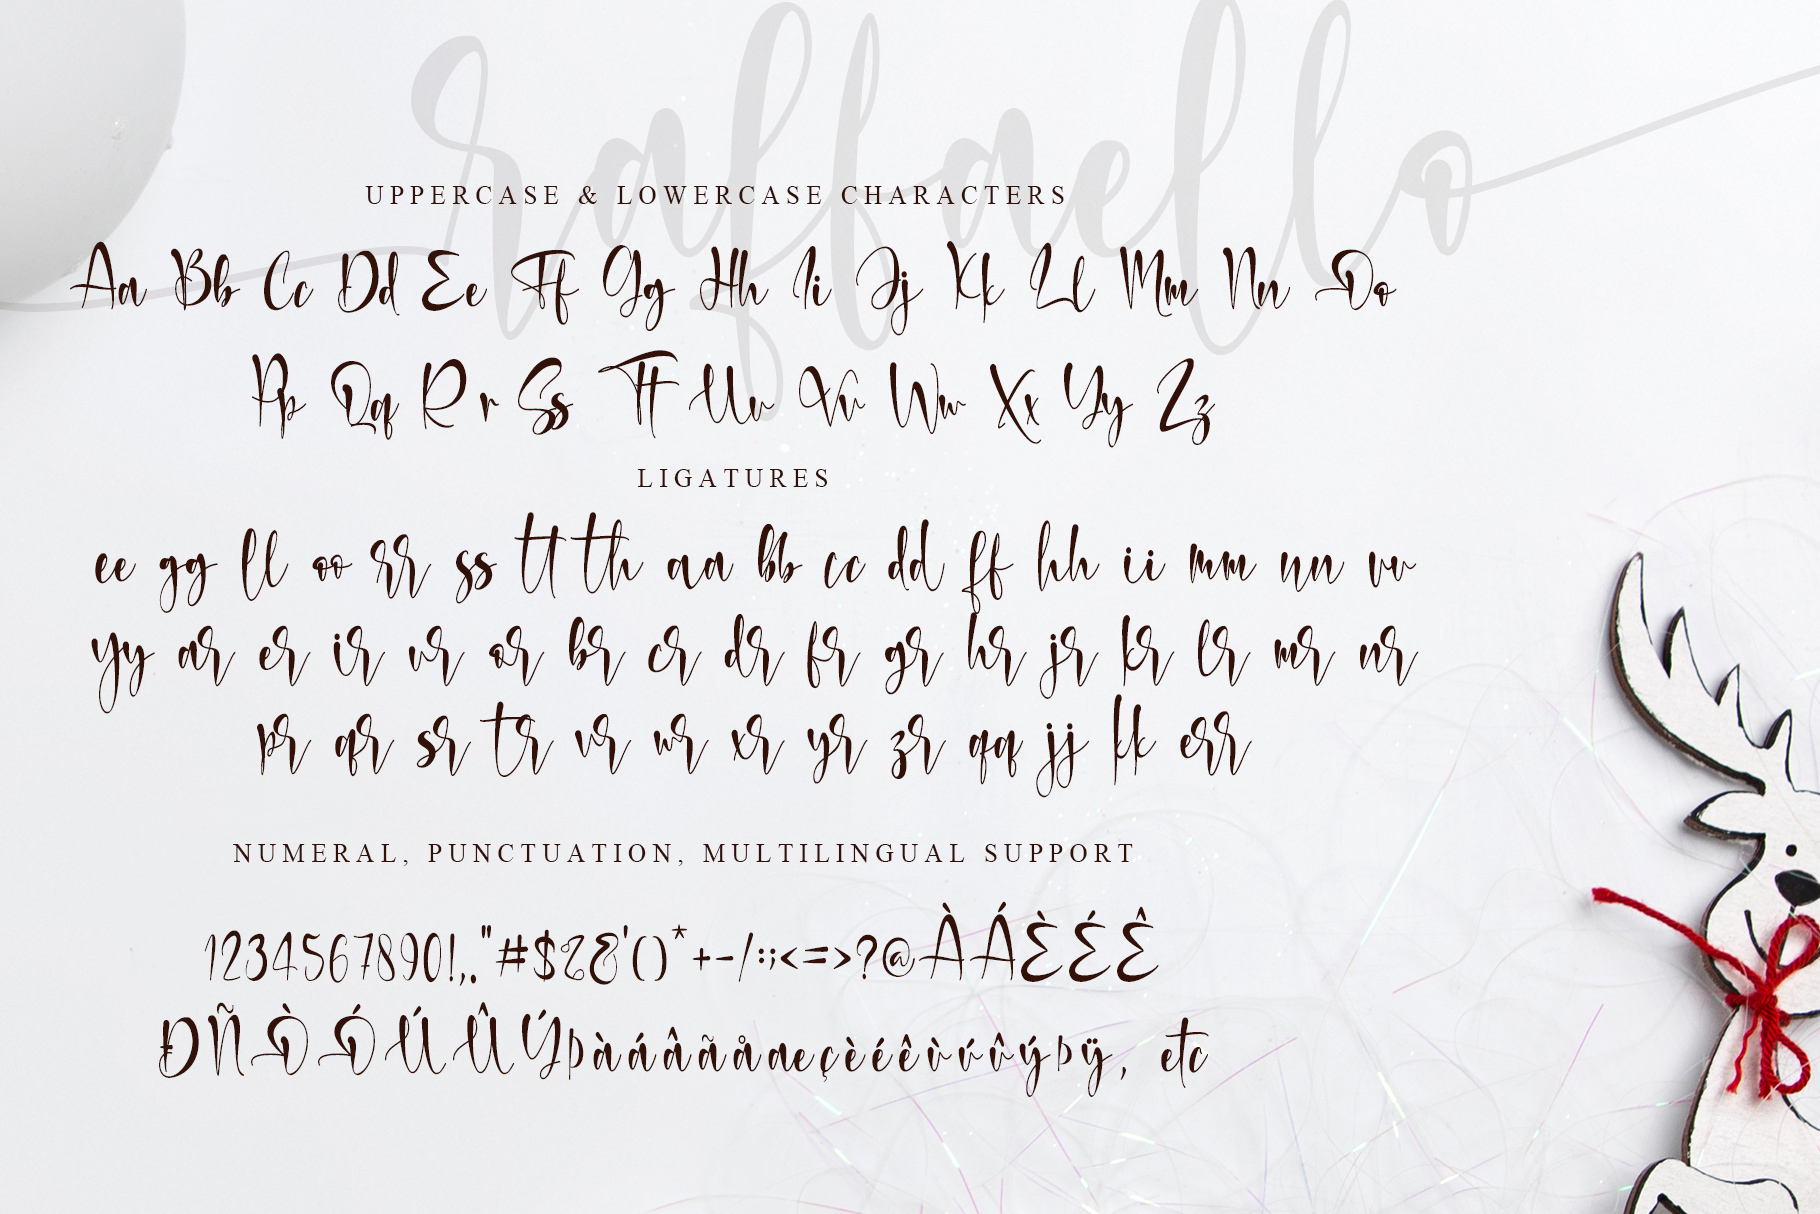 raffaello
UPPERCASE & LOWERCASE CHARACTERS
Aa Bb Cc Dd Ee Ff Gg Hh Ii Jj Kk Ll Mm Nn Oo
Pp Qq Rr Ss Tt Uu Vv Ww Xx Yy Zz
LIGATURES
ee gg ll oo rr ss tt th aa bb cc dd ff hh ii mm nn vv
yy ar er ir ur or br cr dr fr gr hr jr kr lr mr nr
pr qr sr tr vr wr xr yr zr qq jj kk err
NUMERAL, PUNCTUATION, MULTILINGUAL SUPPORT
1234567890!,."#$%&'()*+-/:;<=>?@ÀÁÈÉÊ
ÐÑÒÓÚÛÝÞàáâãåæçèéêùúûýþÿ, etc